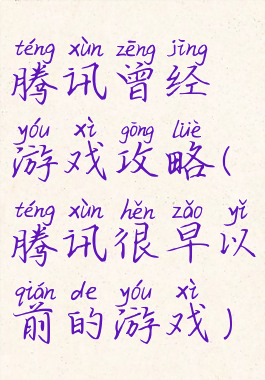 téng xùn zēng jīng
腾讯曾经
yóu xì gōng lüè
游戏攻略(
téng xùn hěn zǎo yǐ
腾讯很早以
qián de yóu xì
前的游戏)